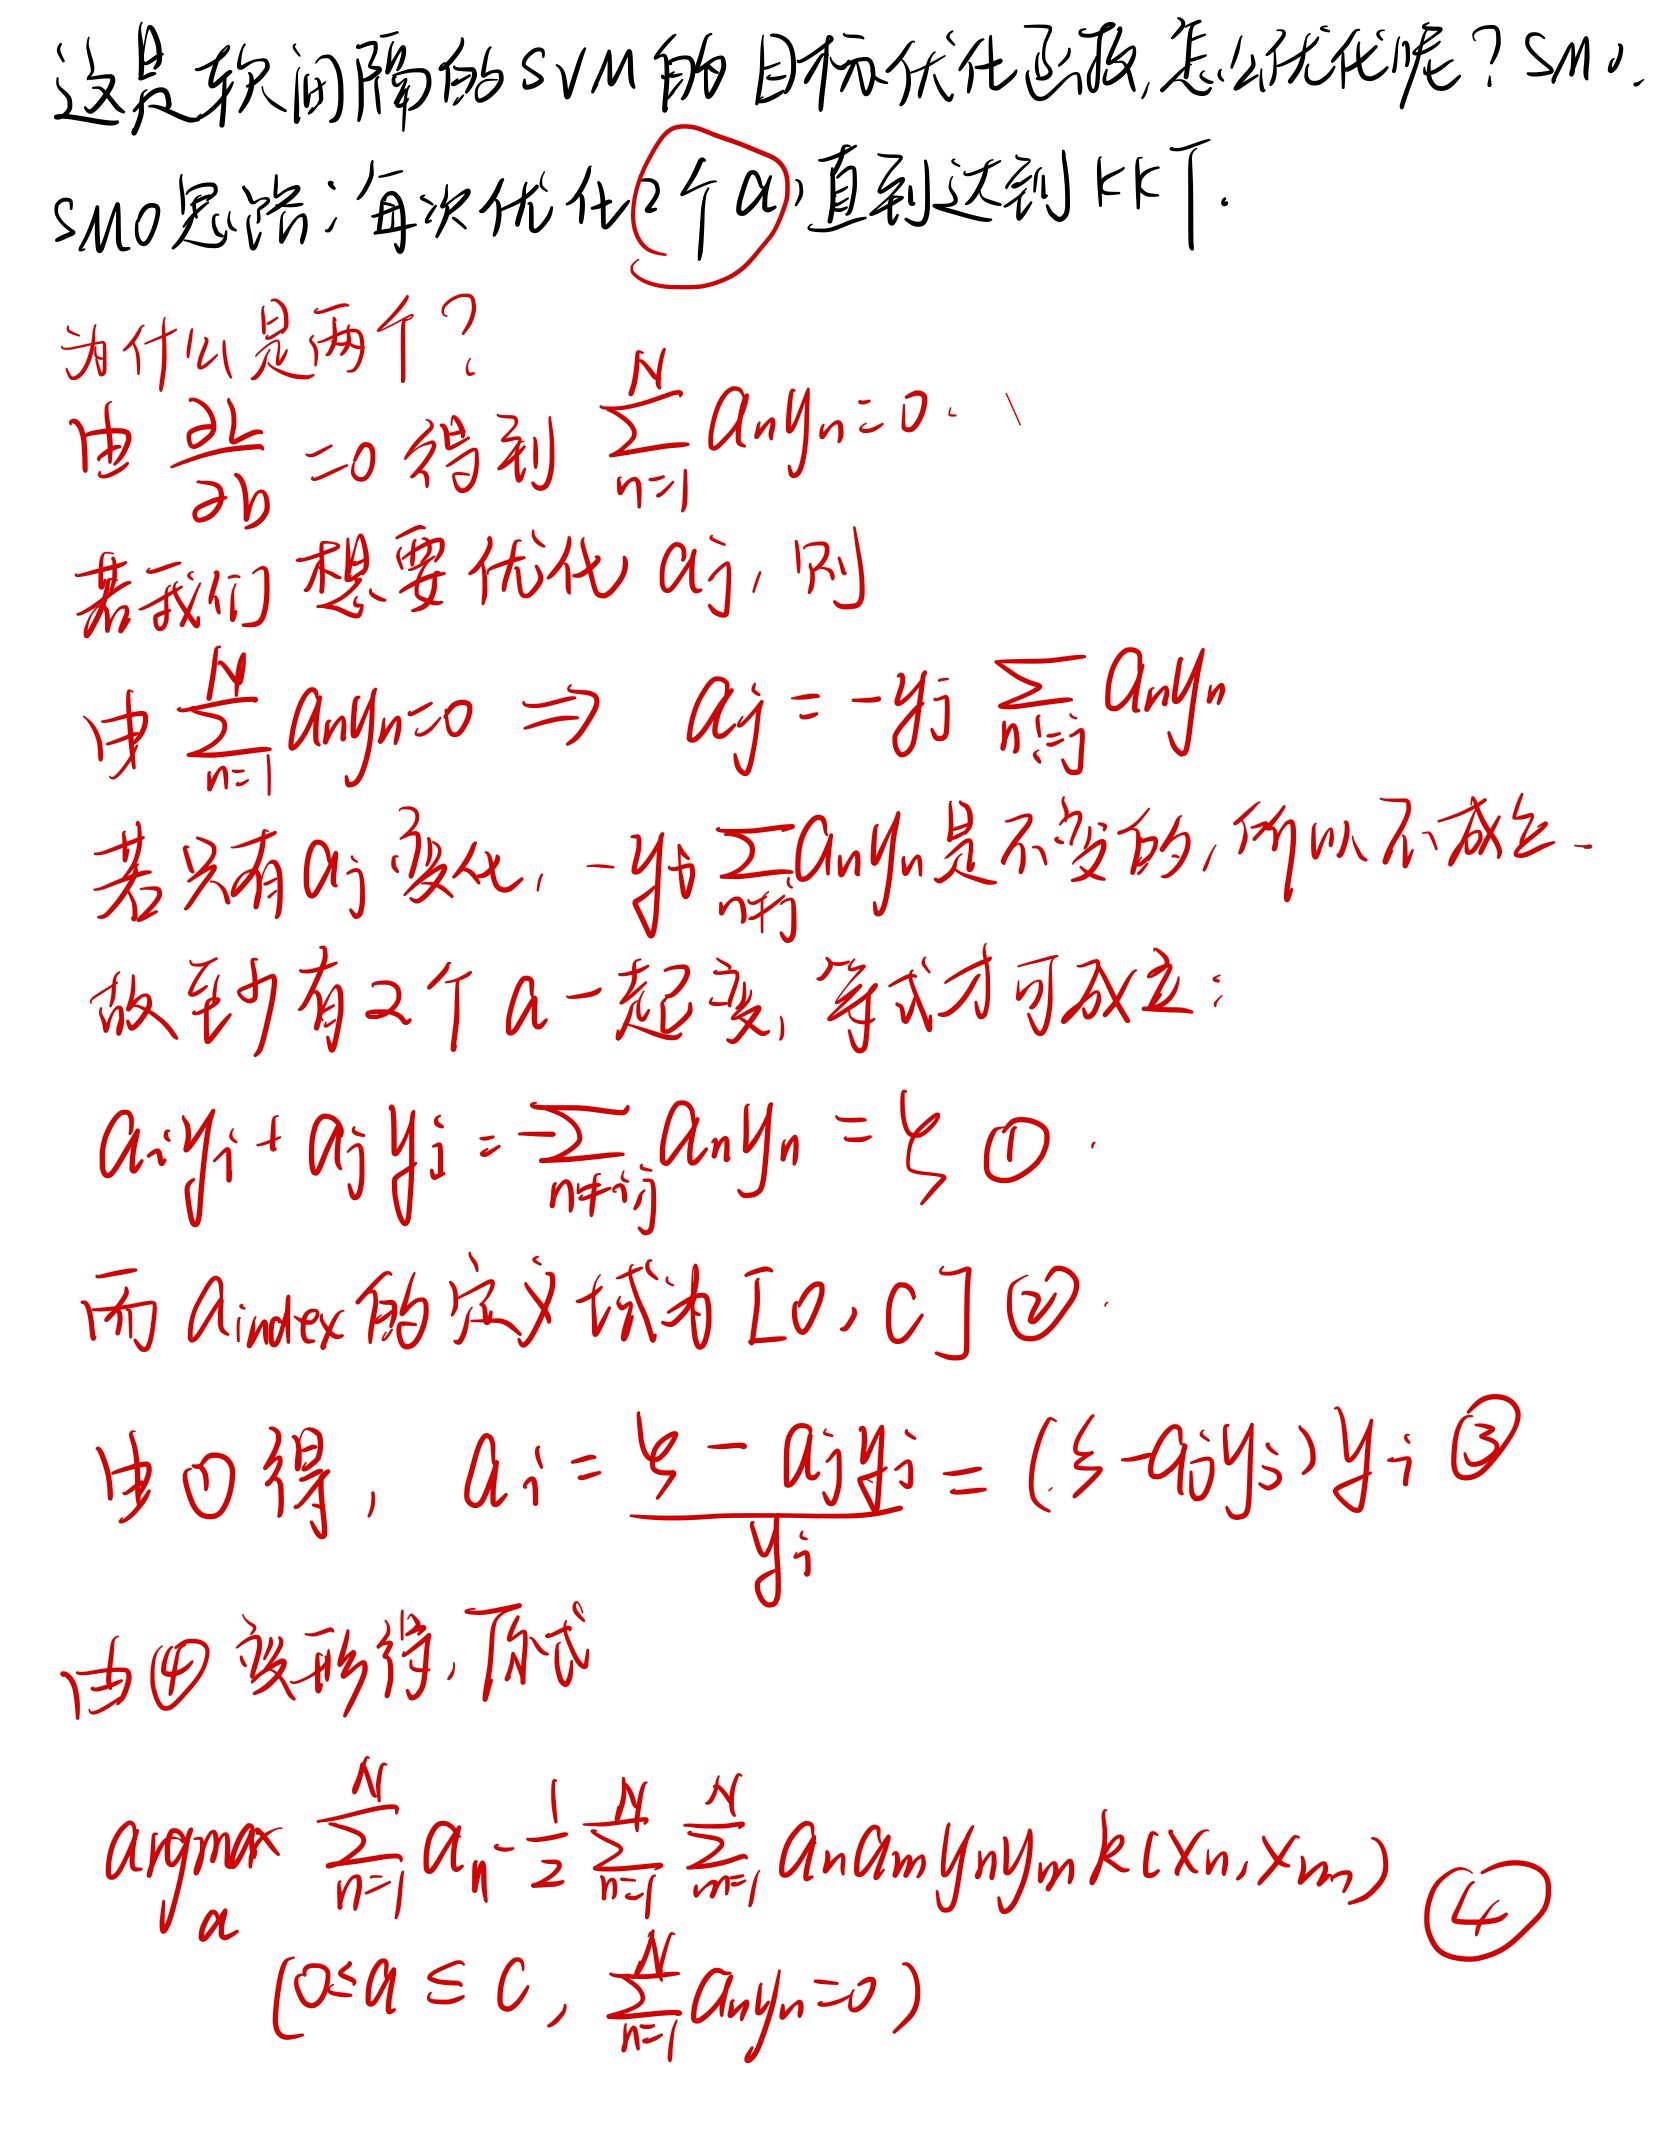 这是软间隔的SVM的目标优化函数,怎么优化呢?SMO.
SMO思路:每次优化2个a,直到达到KKT.
为什么是两个?
由 ∂L/∂b =0 得到 ∑_{n=1}^{N} a_n y_n = 0.
若我们想要优化 a_j, 则
由 ∑_{n=1}^{N} a_n y_n = 0 ⇒ a_j = -y_j ∑_{n!=j} a_n y_n
若只有 a_j 变化, -y_j ∑_{n≠j} a_n y_n 是不变的,所以不成立.
故至少有2个a一起变,等式才可成立:
a_i y_i + a_j y_j = -∑_{n≠i,j} a_n y_n = ζ ①
而 a_index 的定义域为 [0, C] ②
由①得, a_i = (ζ - a_j y_j)/y_i = (ζ - a_j y_j) y_i ③
由④变形得,原式
argmax_a ∑_{n=1}^{N} a_n - 1/2 ∑_{n=1}^{N} ∑_{m=1}^{N} a_n a_m y_n y_m k(x_n, x_m) ④
(0≤a≤C, ∑_{n=1}^{N} a_n y_n = 0)